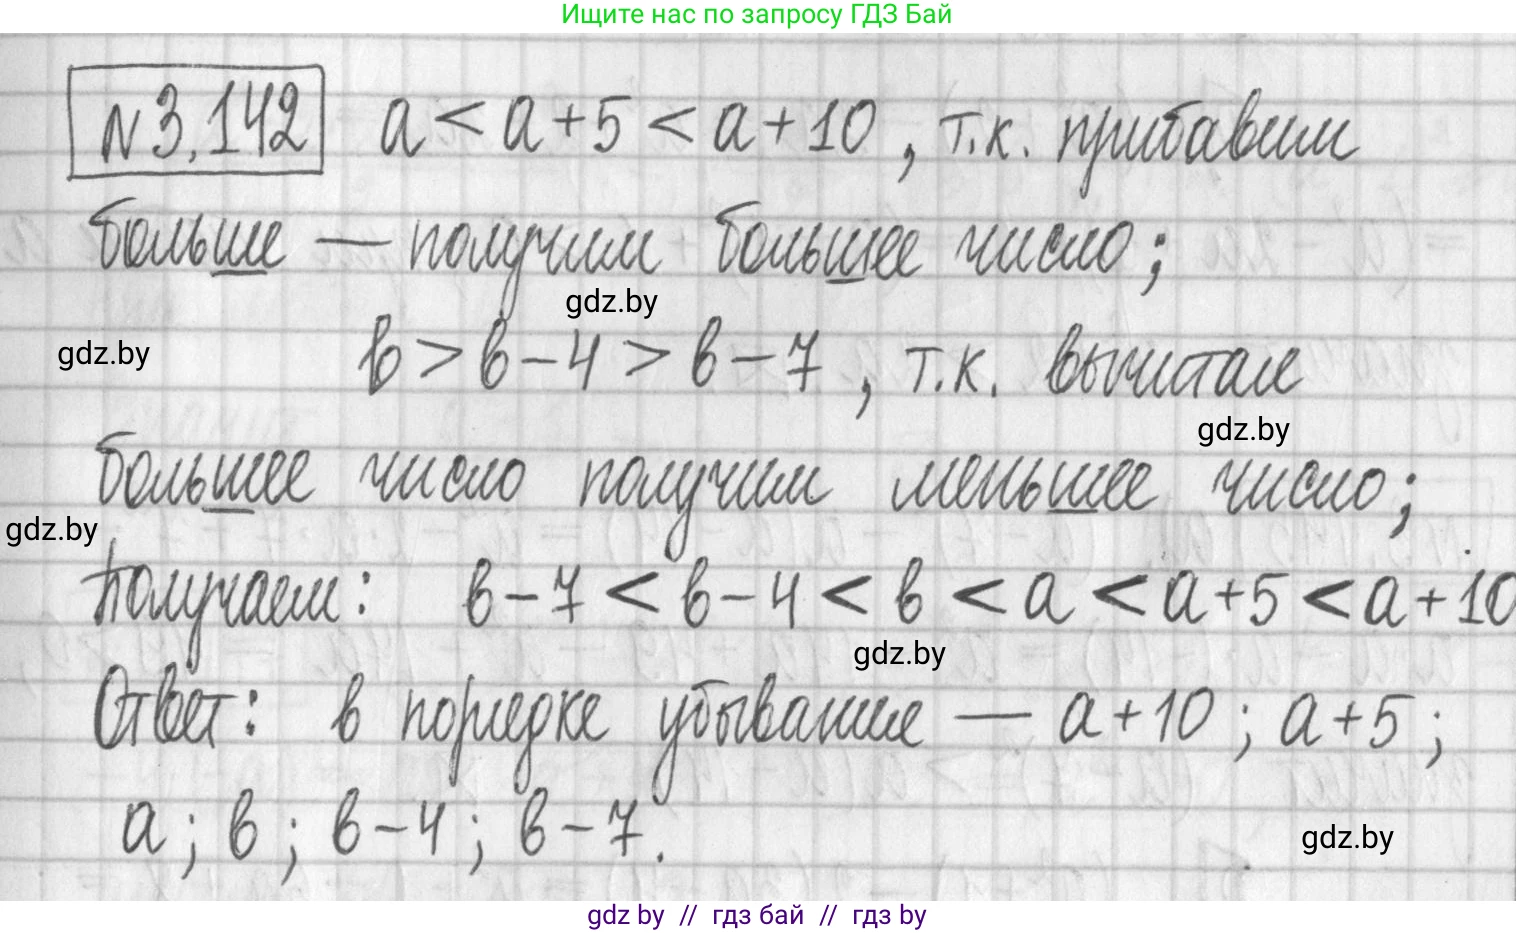 Ищите нас по запросу ГДЗ Бай
№3.142 a < a+5 < a+10, т.к. прибавим
больше — получим большее число;
gdz.by
в > в-4 > в-7, т.к. вычитая
gdz.by
gdz.by
большее число получим меньшее число;
gdz.by
Получаем: в-7 < в-4 < в < a < a+5 < a+10
gdz.by
Ответ: в порядке убывания — a+10; a+5;
a; в; в-4; в-7.
gdz.by
gdz by // гдз бай // гдз by